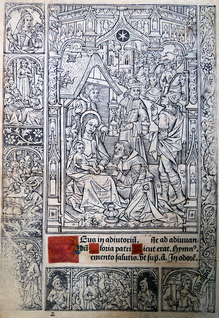 Eus in adiutoriũ. ñe ad adiuuan
dũ loria patri icut erat. Hymnꝰ
emento salutis. vt supͣ. Añ. In odorē.